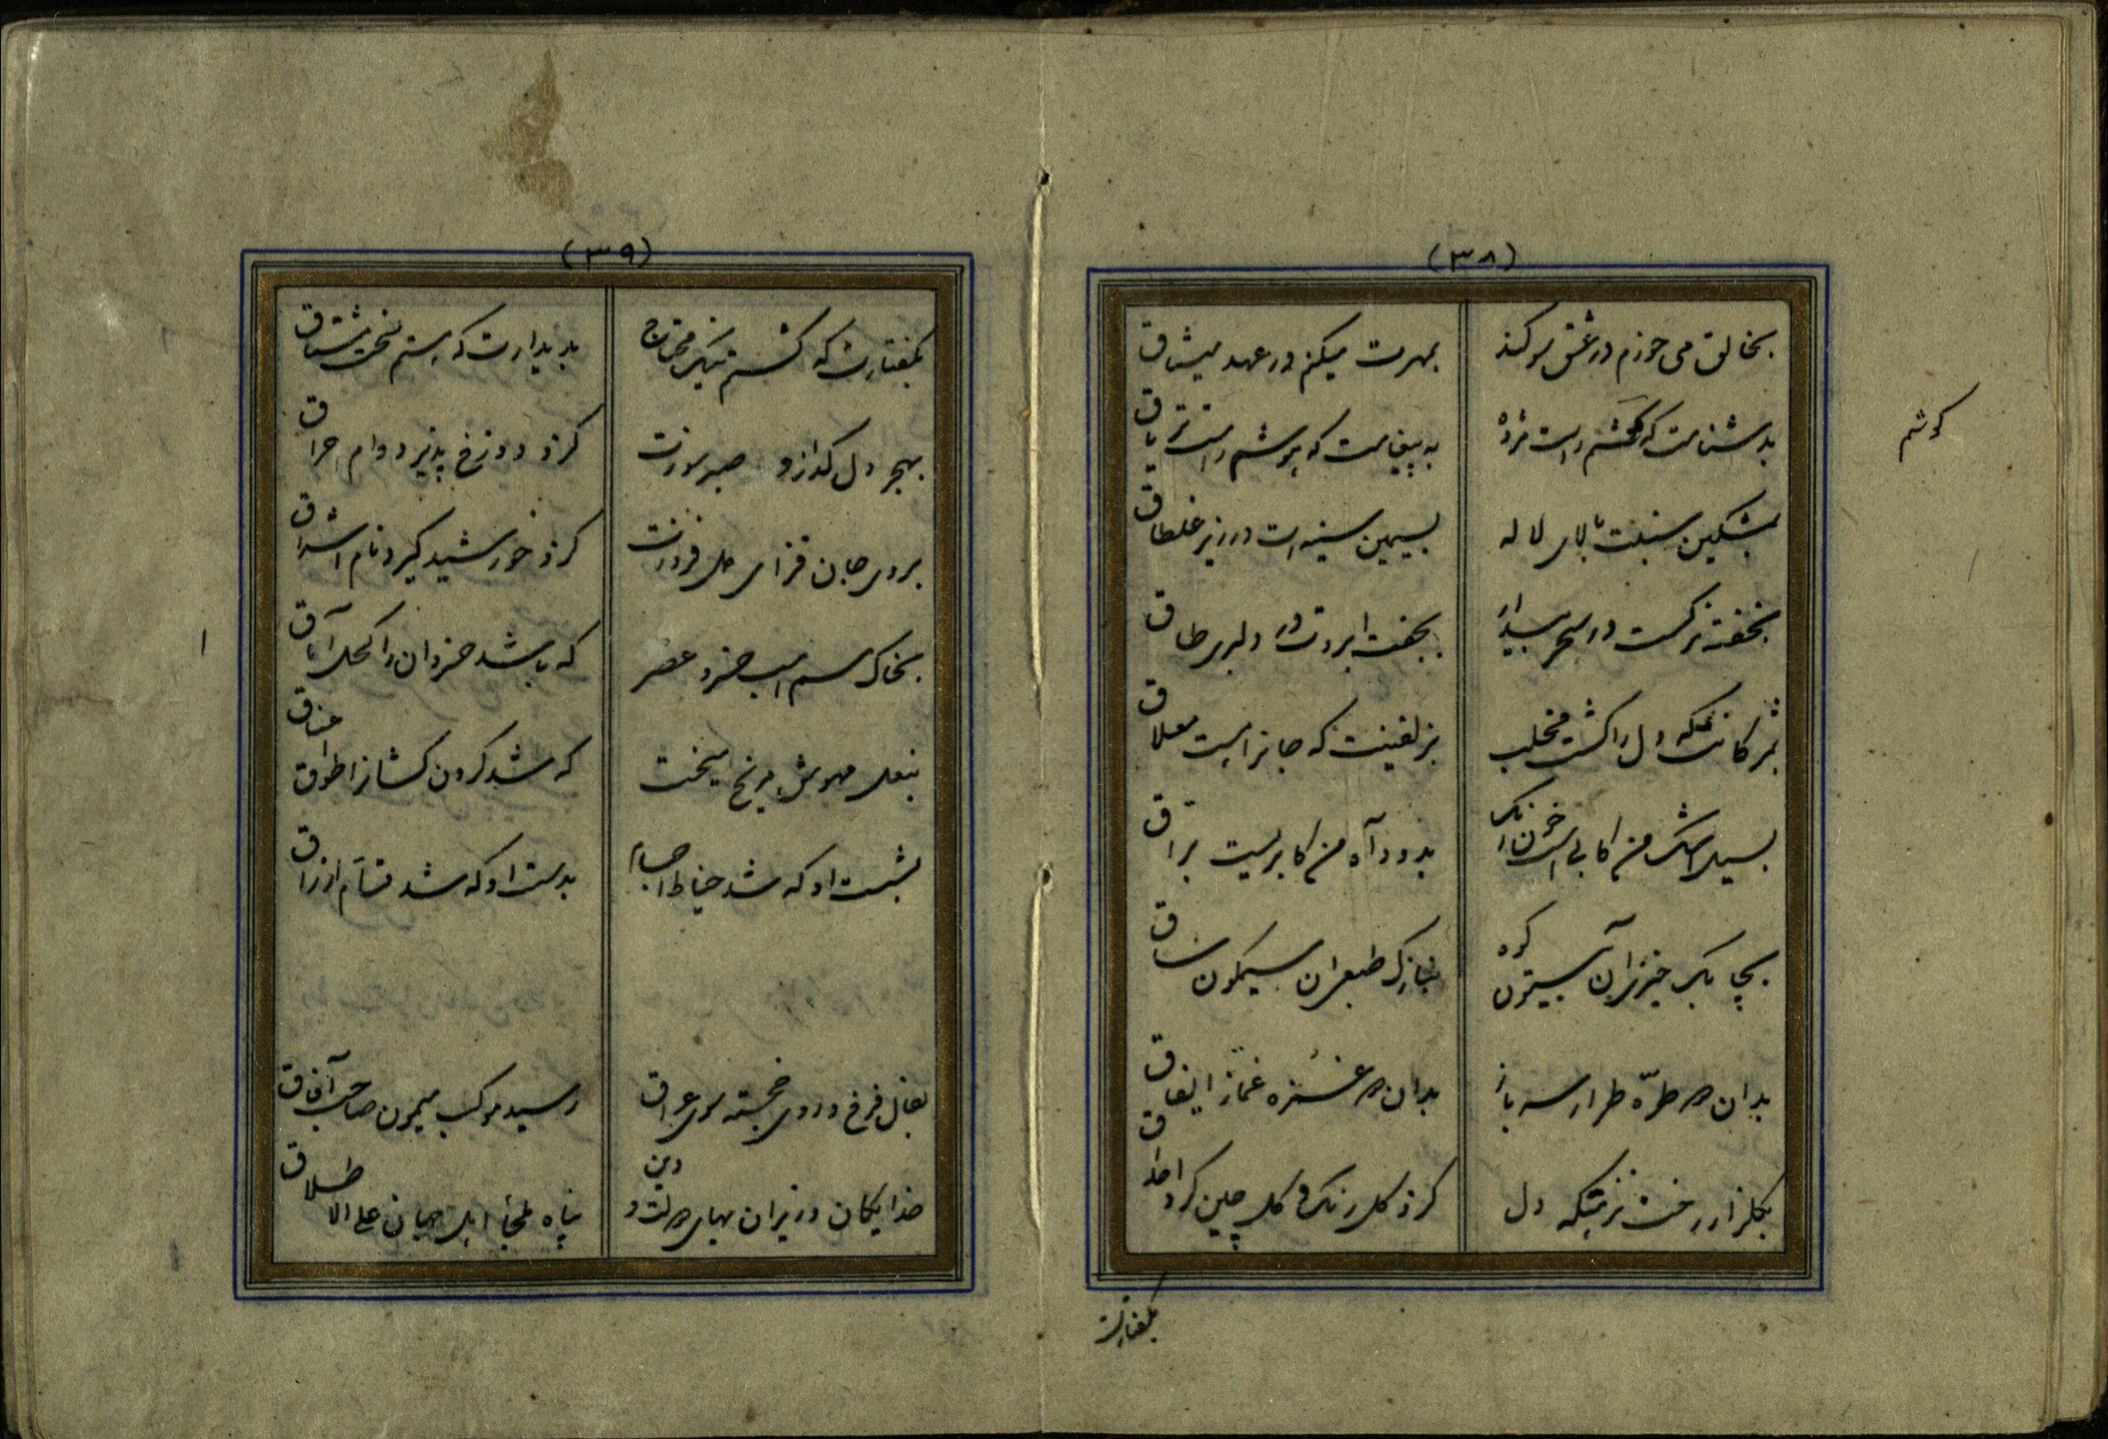 (۳۸)
بخالق می خورم در عشق سوگند
بمهرت میکنم در عهد میثاق
بدشنامت که گوشم راست مژده
به پیغامت که هوشم راست تریاق
گوشم
بمشکین سنبلت بالای لاله
بسیمین سینه ات در زیر غلطاق
بخفته نرگست در سحر بیدار
بجفت ابروت در دلبری طاق
بمژگانت که دل را گشت مخلب
بزلفینت که جانراست معلاق
بسیل اشک من کابی است
بدود آه من کابریست براق
بچابک خیزی آن کوه بیستون
بنازک طبعی آن سیمگون ساق
بدان هر طره طرار سرباز
بدان هر غمزه غماز ایفاق
بگلزار رخت نزهتگه دل
کزو گل رنگ و گلچین کرد
بگفتارت
(۳۹)
بگفتارت که گشتم نیک محتاج
بدیدارت که هستم سخت مشتاق
بهجر دل گداز و صبر سوزت
کزو دوزخ پذیرد وام احراق
بروی جان فزای دل فروزت
کزو خورشید گیرد نام اشراق
بخاک سم اسب خسرو عصر
که باشد خسروان را کحل آماق
بنعل مهوش مریخ
که شد گردن کشانرا طوق اعناق
بشست او که شد خیاط اجسام
بدست او که شد قسام ارزاق
بفال فرخ و روی خجسته سوی عراق
رسید موکب میمون صاحب آفاق
خدایگان وزیران بهای دولت و دین
پناه و ملجأ اهل جهان علی الاطلاق